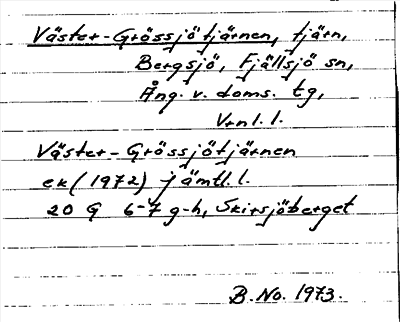 Väster-Grössjötjärnen, tjärn,
Bergsjö, Fjällsjö sn,
Ång. v. doms. tg,
Vrnl. l.
Väster-Grössjötjärnen
ek (1972) jämtl. l.
20 G 6-7 g-h, Skirsjöberget
B. No. 1973.